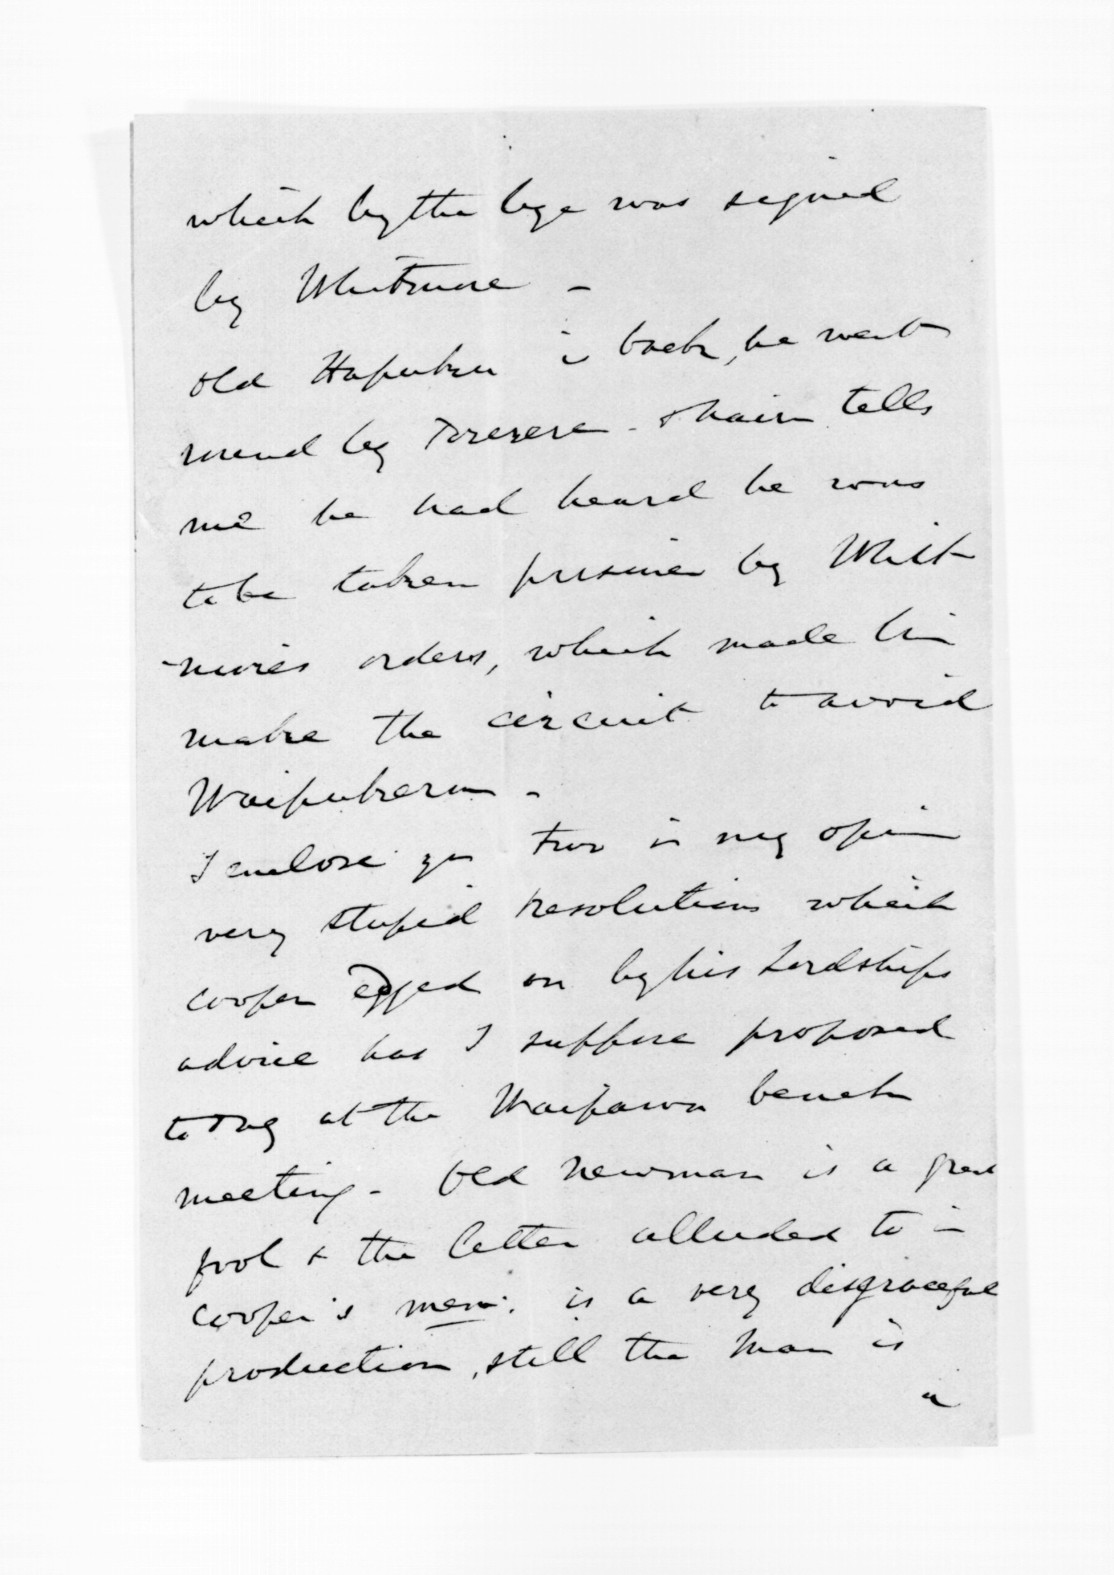 which by the bye was signed
by Whitmore -
old Hapuku is back, he went
round by - tells
me he had heard he was
to be taken prisoner by Whit
-mores orders, which made him
make the circuit to avoid
Waipukurau -
I enclose you two in my opin
very stupid resolutions which
Cooper egged on by his Lordships
advice has I suppose proposed
today at the Waipawa bench
meeting - Old Newman is a great
fool & the letter alluded to in
Cooper's mem: is a very disgraceful
production, still the man is
a